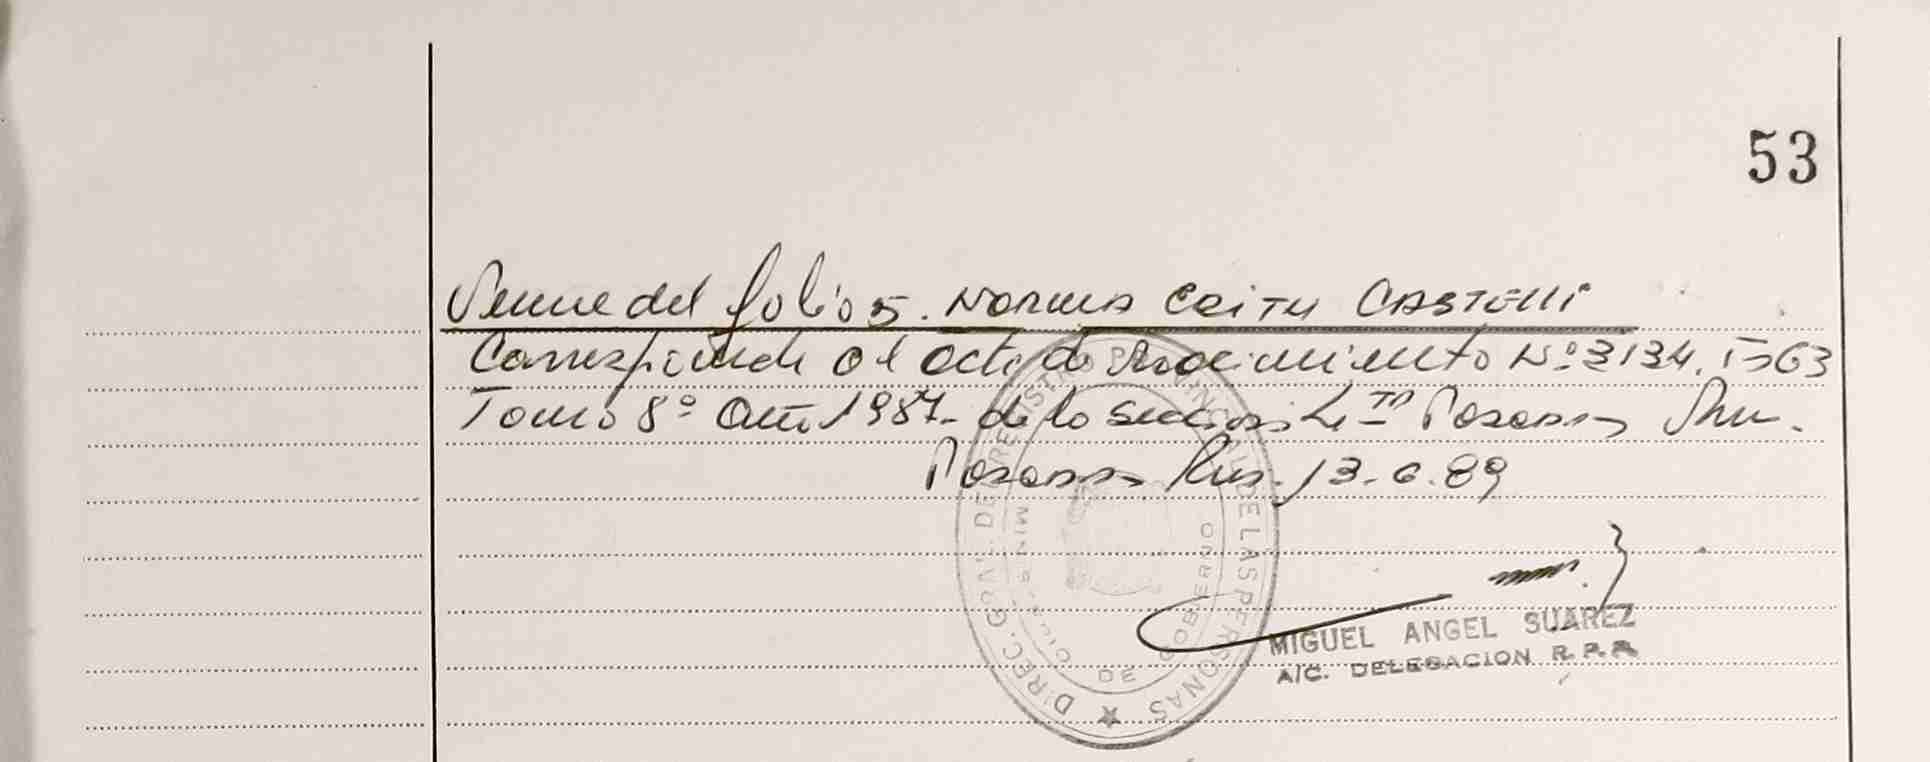 53
Viene del folio 5. NORMA CEITH CASTELLI
Corresponde al acta de nacimiento Nº 3134. Fº 63
Tomo 8º año 1987 - de la sección Posadas
Posadas Mis. 13.6.89
MIGUEL ANGEL SUAREZ
A/C. DELEGACION R.P.P.
DIREC. GRAL. DEL REGISTRO PROVINCIAL DE LAS PERSONAS ★
MINISTERIO DE GOBIERNO